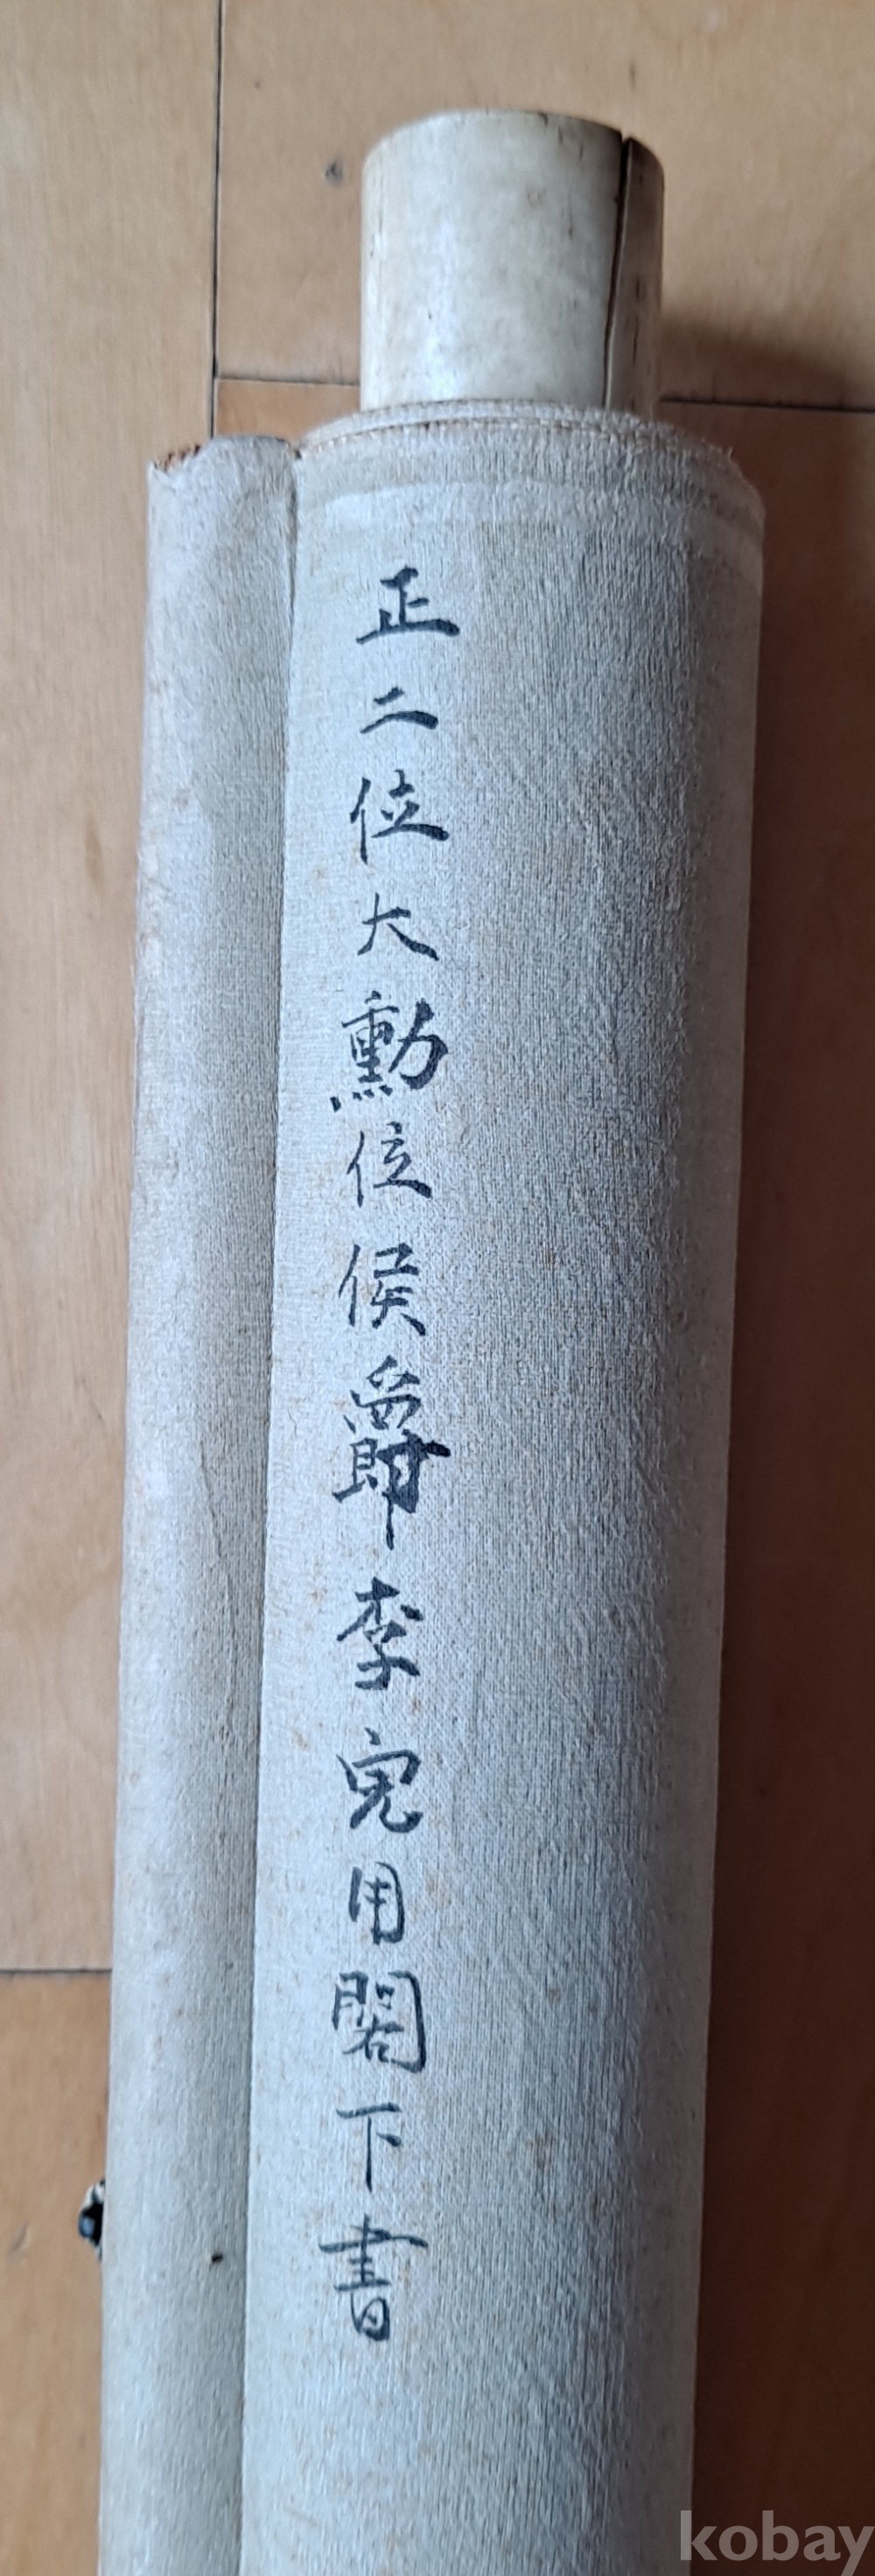 正二位大勳位侯爵李完用閣下書
kobay